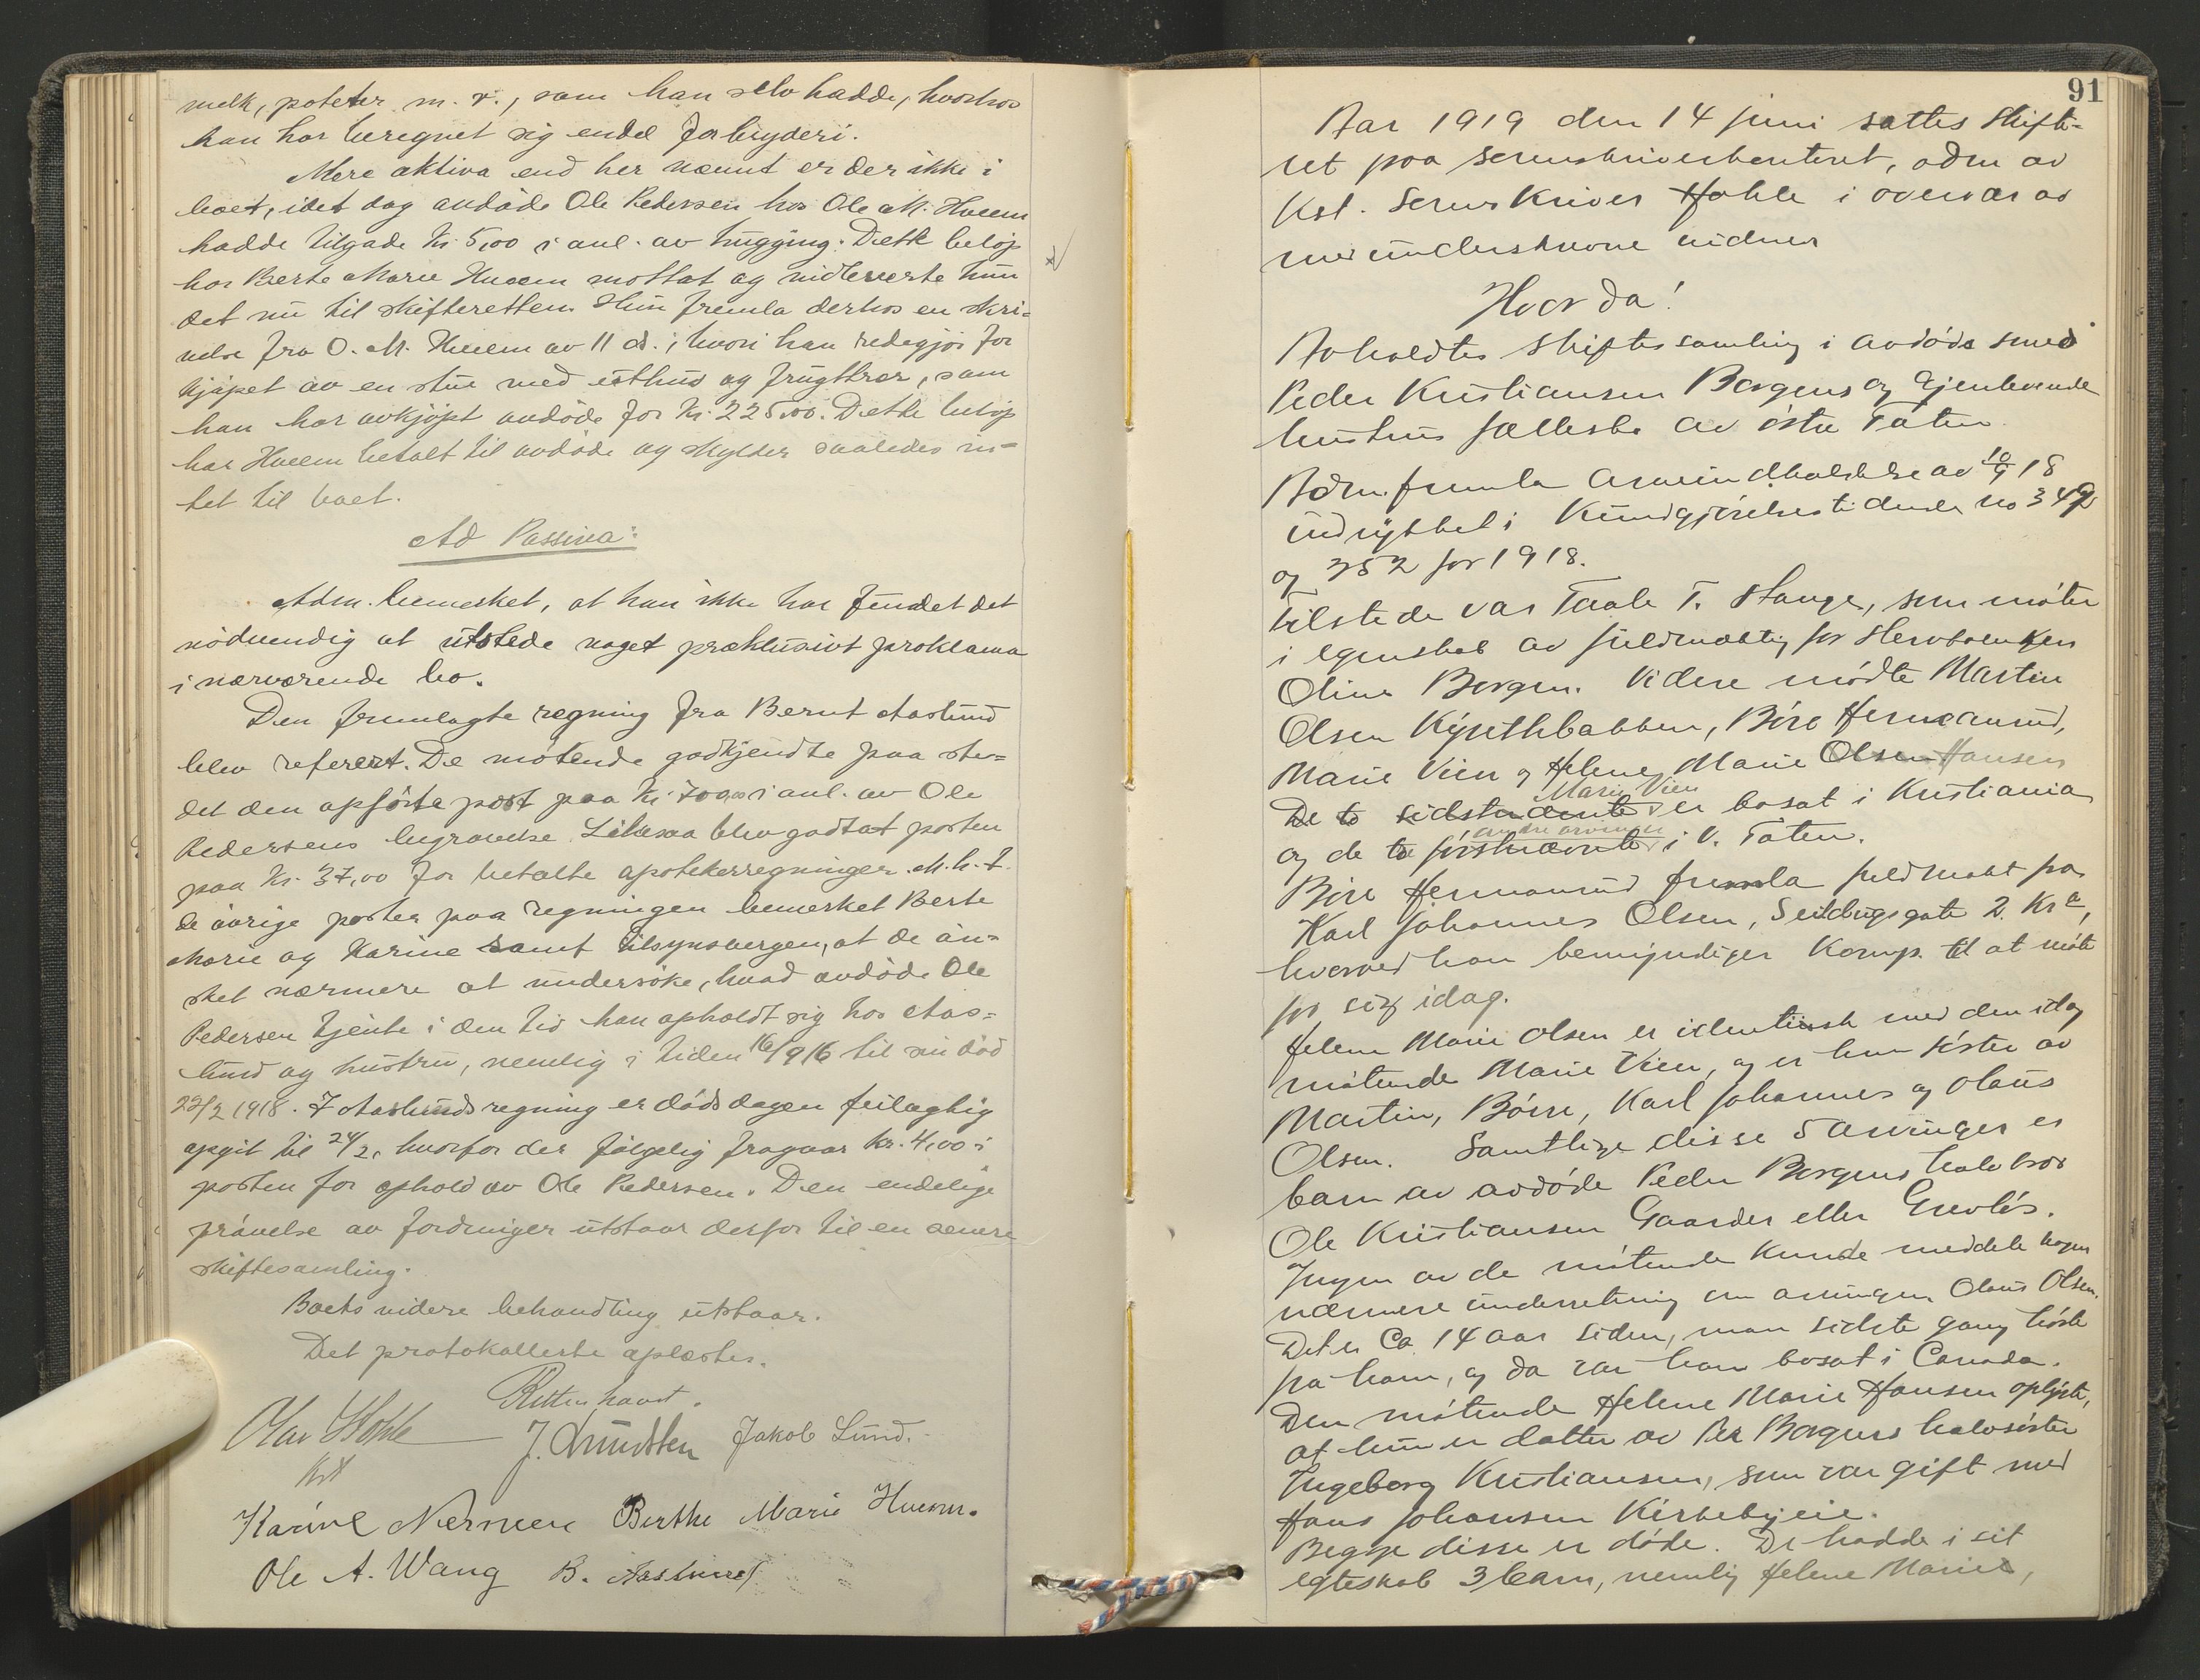 melk, poteter m. v., som han selv hadde, hvorhos
han har beregnet sig endel forbryderi.
Mere aktiva end her nævnt er der ikke i
boet, idet dog avdøde Ole Pedersen hos Ole M. Hveem
hadde tilgode kr. 5,00 i anl. av hugging. Dette beløp
har Berte Marie Hveem mottat og indleverte hun
det nu til skifteretten. Hun fremla derhos en skri-
velse fra O. M. Hveem av 11 ds., hvori han redegjør for
kjøpet av en stue med uthus og frugttrær, som
han har avkjøpt avdøde for kr. 225,00. Dette beløp
har Hveem betalt til avdøde og skylder saaledes in-
tet til boet.
Ad Passiva:
Adm. bemerket, at han ikke har fundet det
nødvendig at utstede noget præklusivt proklama
i nærværende bo.
Den fremlagte regning fra Bernt Aaslund
blev referert. De møtende godkjendte paa ste-
det den opførte post paa kr. 700,00 i anl. av Ole
Pedersens begravelse. Likesaa blev godtat posten
paa kr. 37,00 for betalte apotekerregninger. M. h. t.
de øvrige poster paa regningen bemerket Berte
Marie og Karine samt tilsynsvergen, at de øn-
sket nærmere at undersøke, hvad avdøde Ole
Pedersen tjente i den tid han opholdt sig hos Aas-
lund og hustru, nemlig i tiden 16/9 16 til sin død
22/2 1918. I Aaslunds regning er dødsdagen feilagtig
opgit til 24/2, hvorfor der følgelig fragaar kr. 4,00 i
posten for ophold av Ole Pedersen. Den endelige
prøvelse av fordringer utstaar derfor til en senere
skiftesamling.
Boets videre behandling utstaar.
Det protokollerte oplæstes.
Retten hævet.
Olav Hohle J. Amundsen Jakob Lund.
Kst
Karine Nermeen Berthe Marie Hveem.
Ole A. Wang B. Aaslund
91
Aar 1919 den 14 juni sattes skifte-
ret paa sorenskriverkontoret, adm av
Kst. Sorenskriver Hohle i overvær av
med underskrevne vidner
Hvor da!
Avholdtes skiftesamling i avdøde smed
Peder Kristiansen Borgens og gjenlevende
hustrus fællesbo av østre Toten.
Adm. fremla arveindkaldelse av 10/9 18
indrykket i Kundgjørelsestidende no 349
og 352 for 1918.
Tilstede var Taale T. Stange, som møter
i egenskab av fuldmægtig for Hervorenken
Oline Borgen. Videre mødte Martin
Olsen Kyset­hbakken, Børe Hermanrud,
Marie Vien og Helene Marie Olsen Hansen
De to sidstnævnte Marie Vien er bosat i Kristiania
og de to førstnævnte andre arvinger i V. Toten.
Børe Hermanrud fremla fuldmakt fra
Karl Johannes Olsen, Seildugsgate 2. Kr a,
hvorved han bemyndiger Komp. til at møte
for sig idag.
Helene Marie Olsen er identisk med den idag
møtende Marie Vien, og er hun søster av
Martin, Børre, Karl Johannes og Olaus
Olsen. Samtlige disse 5 arvinger er
barn av avdøde Peder Borgens halvbror
Ole Kristiansen Gaarder eller Grevløs.
Ingen av de møtende kunde meddele nogen
nærmere underretning om arvingen Olaus Olsen.
Det er Ca. 14 aar siden, man sidste gang hørte
fra ham, og da var han bosat i Canada.
Den møtende Helene Marie Hansen oplyste,
at hun er datter av Per Borgens halvsøster
Ingeborg Kristiansen, som var gift med
Hans Johansen Kirkebyeie.
Begge disse er døde. De hadde i sit
egteskab 3 barn, nemlig Helene Marie,